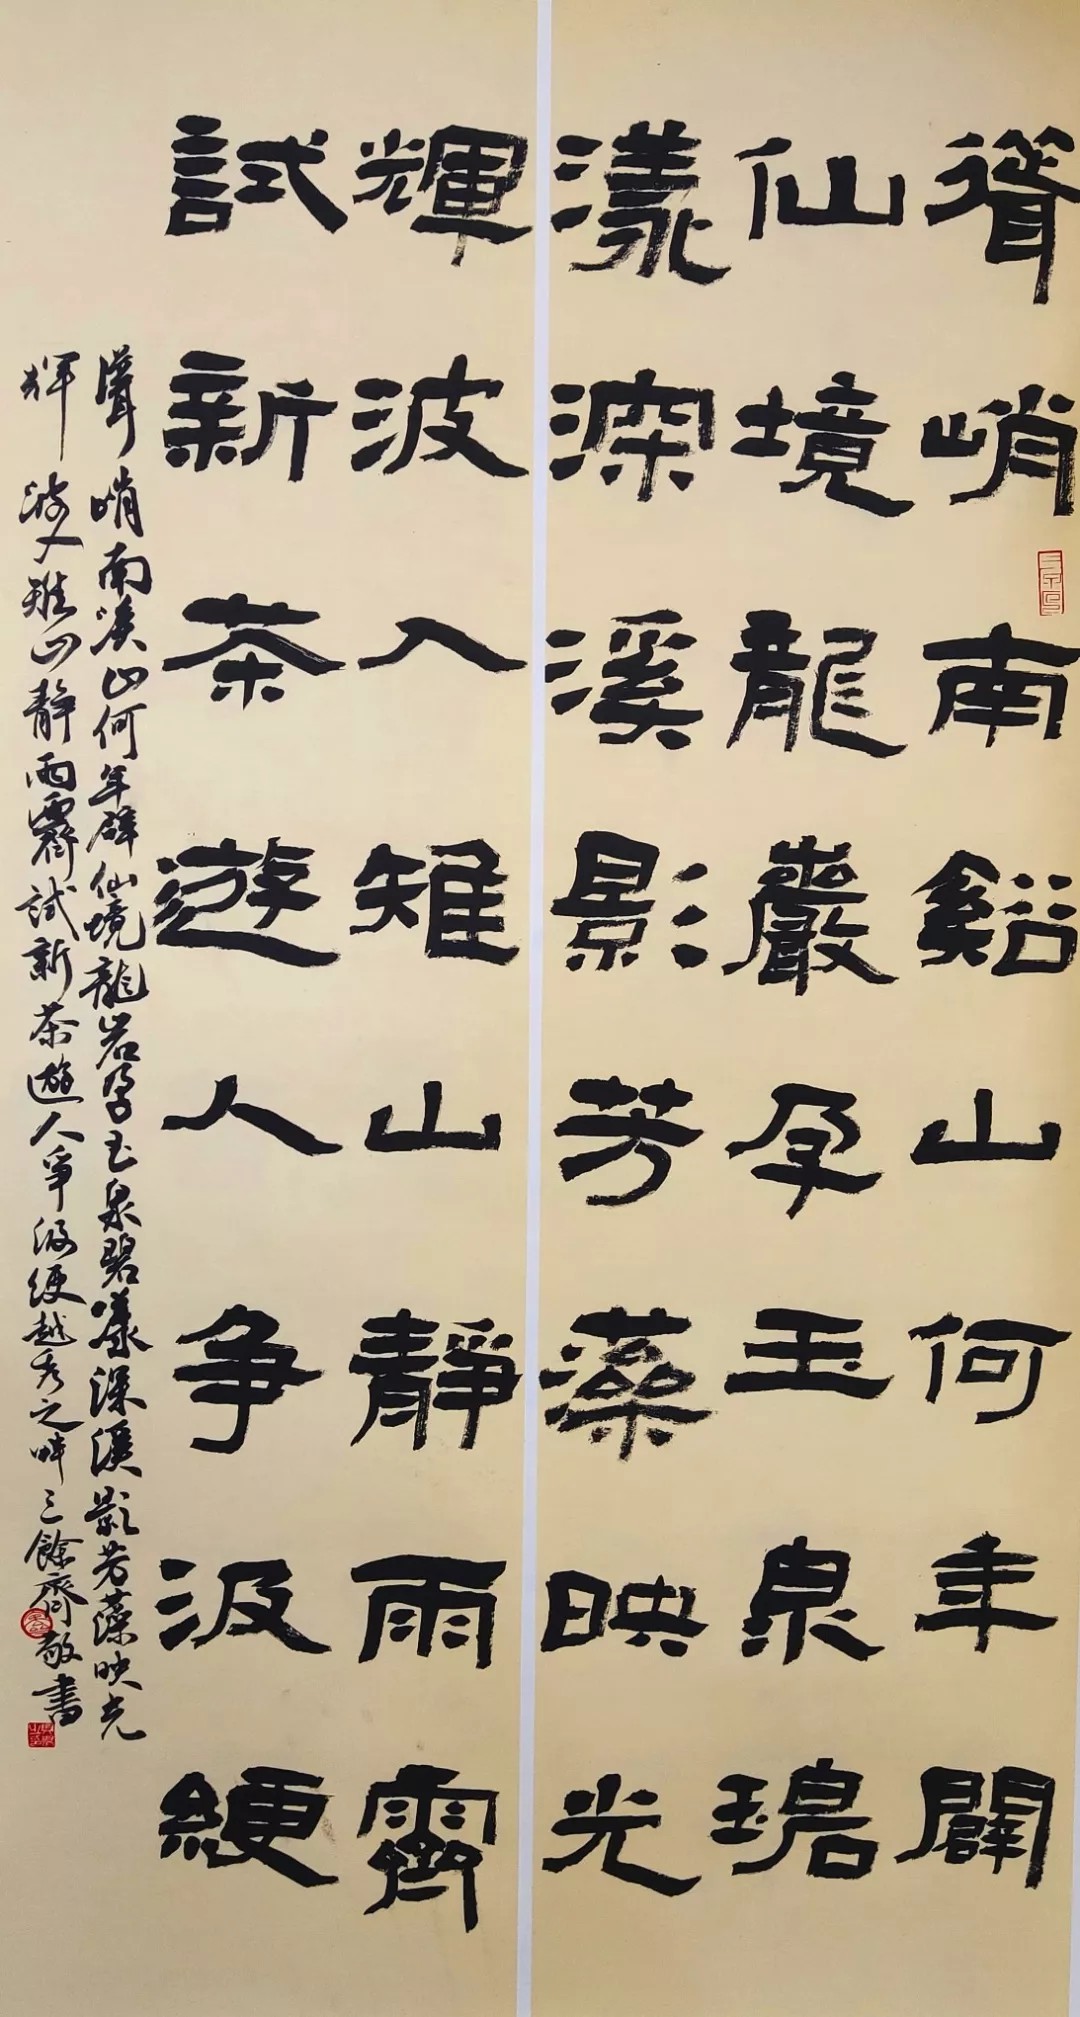 聳峭南谿山何年闢
仙境龍巖孕玉泉碧
漾深溪影芳藻映光
輝波入雉山靜雨霽
試新茶遊人爭汲綆
聳峭南溪山何年辟仙境龍岩孕玉泉碧漾深溪影芳藻映光
輝波入雉山靜雨霽試新茶遊人爭汲綆越秀之畔三餘齋敬書